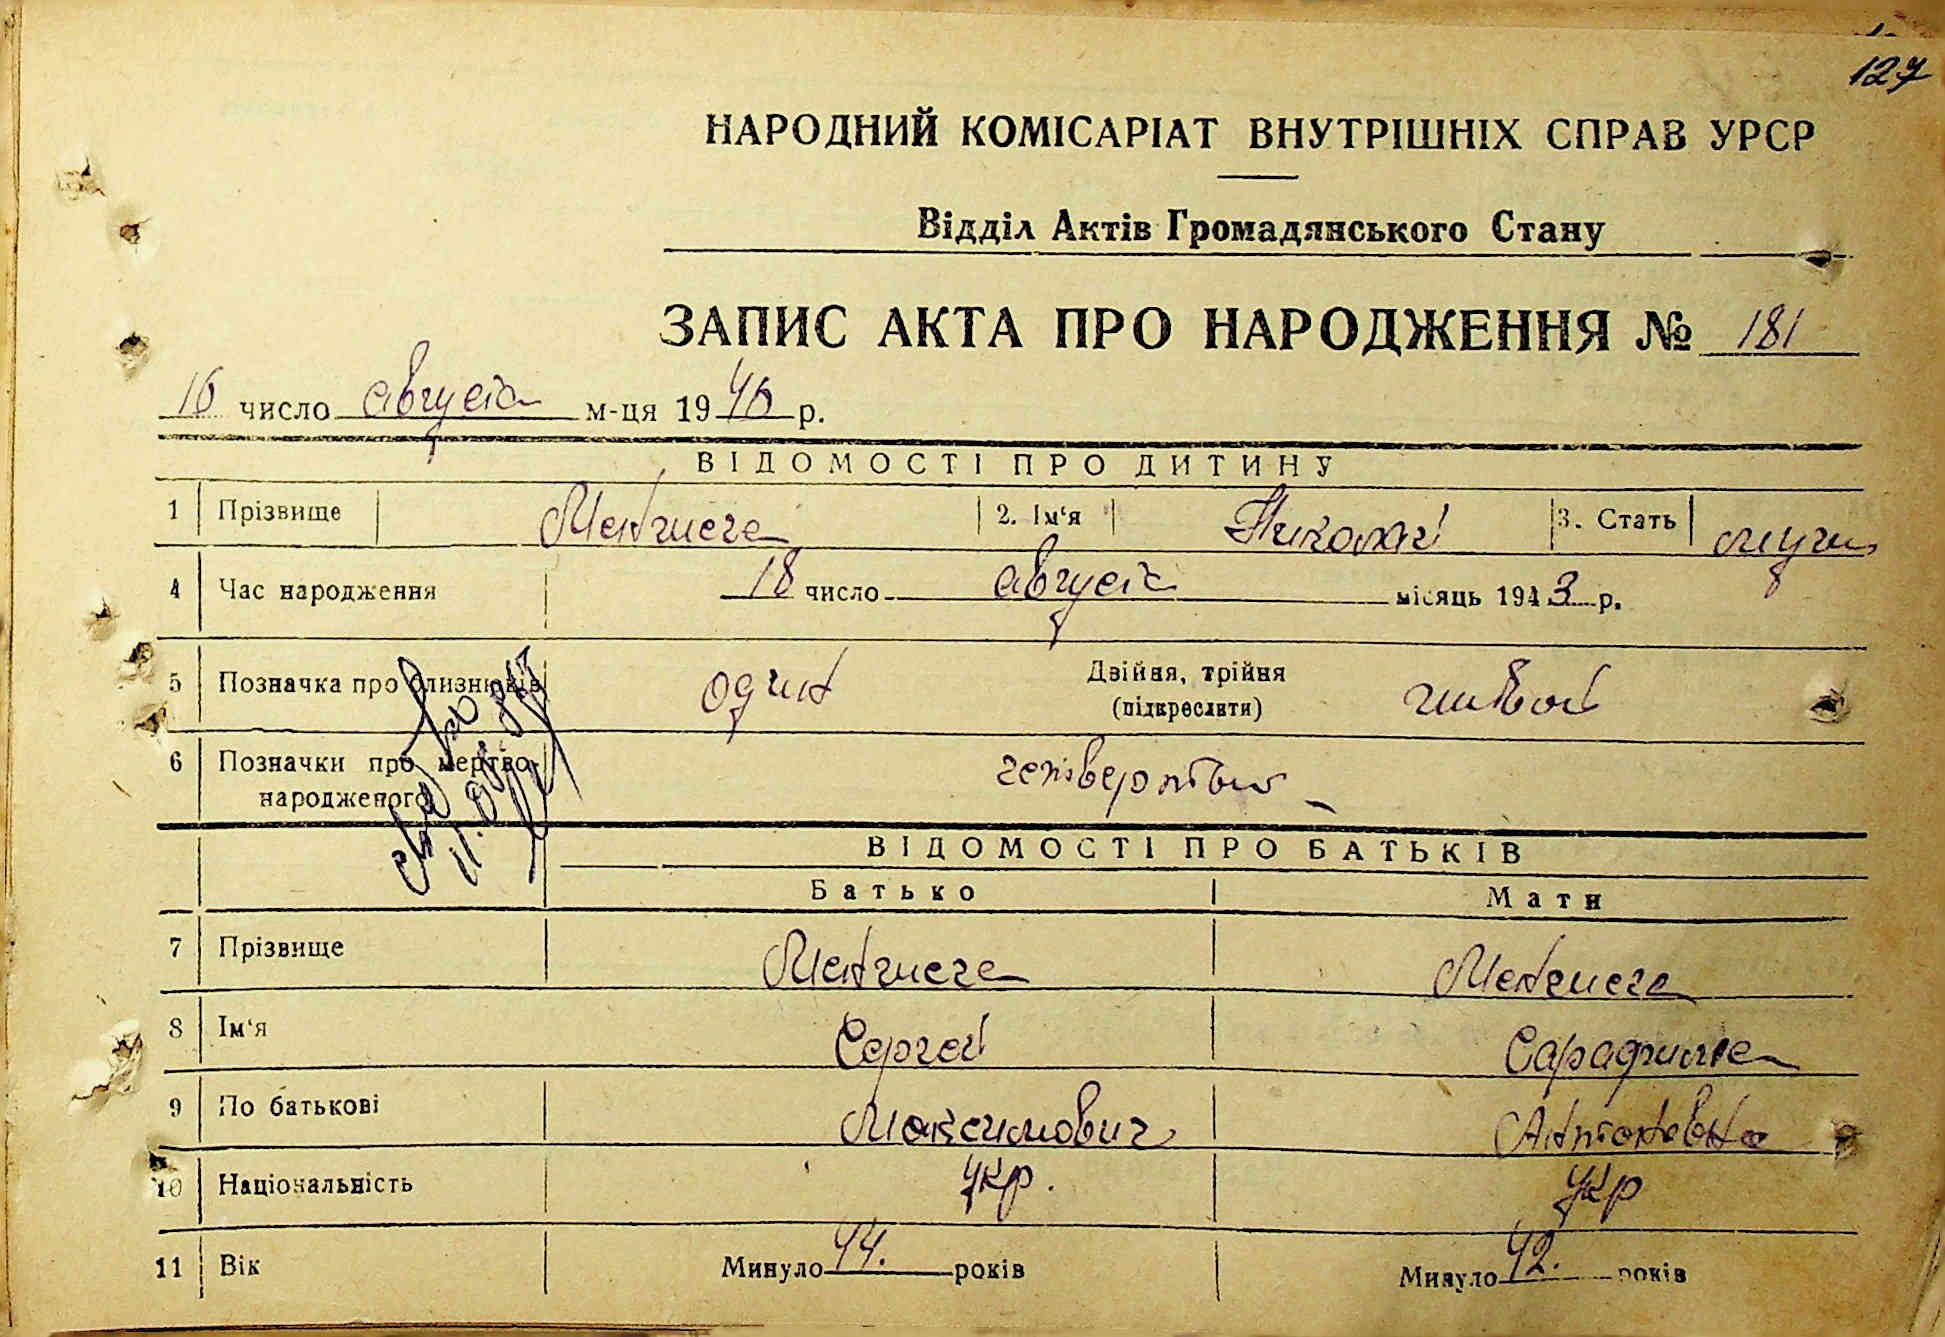 127
НАРОДНИЙ КОМІСАРІАТ ВНУТРІШНІХ СПРАВ УРСР
Відділ Актів Громадянського Стану
ЗАПИС АКТА ПРО НАРОДЖЕННЯ № 181
16 число августа м-ця 1946 р.
ВІДОМОСТІ ПРО ДИТИНУ
1 Прізвище 2. Ім'я Николай 3. Стать муж
4 Час народження 18 число августа місяць 1943 р.
5 Позначка про близнюків один Двійня, трійня (підкреслити) живой
6 Позначки про мертвонародженого четвертый
11.
ВІДОМОСТІ ПРО БАТЬКІВ
Батько Мати
7 Прізвище
8 Ім'я Сергей Сарафима
9 По батькові Максимович Антоновна
10 Національність укр. укр
11 Вік Минуло 44. років Минуло 42. років